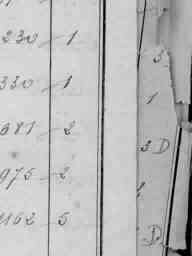 230 - 1
3
330 - 1
1
681 - 2
3 D
975 - 2
1162 - 5
D